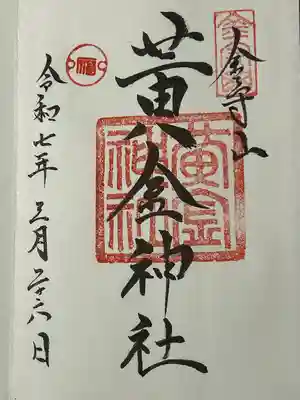 金寺山
黄金神社
令和七年三月二十六日
黄金
神社
福